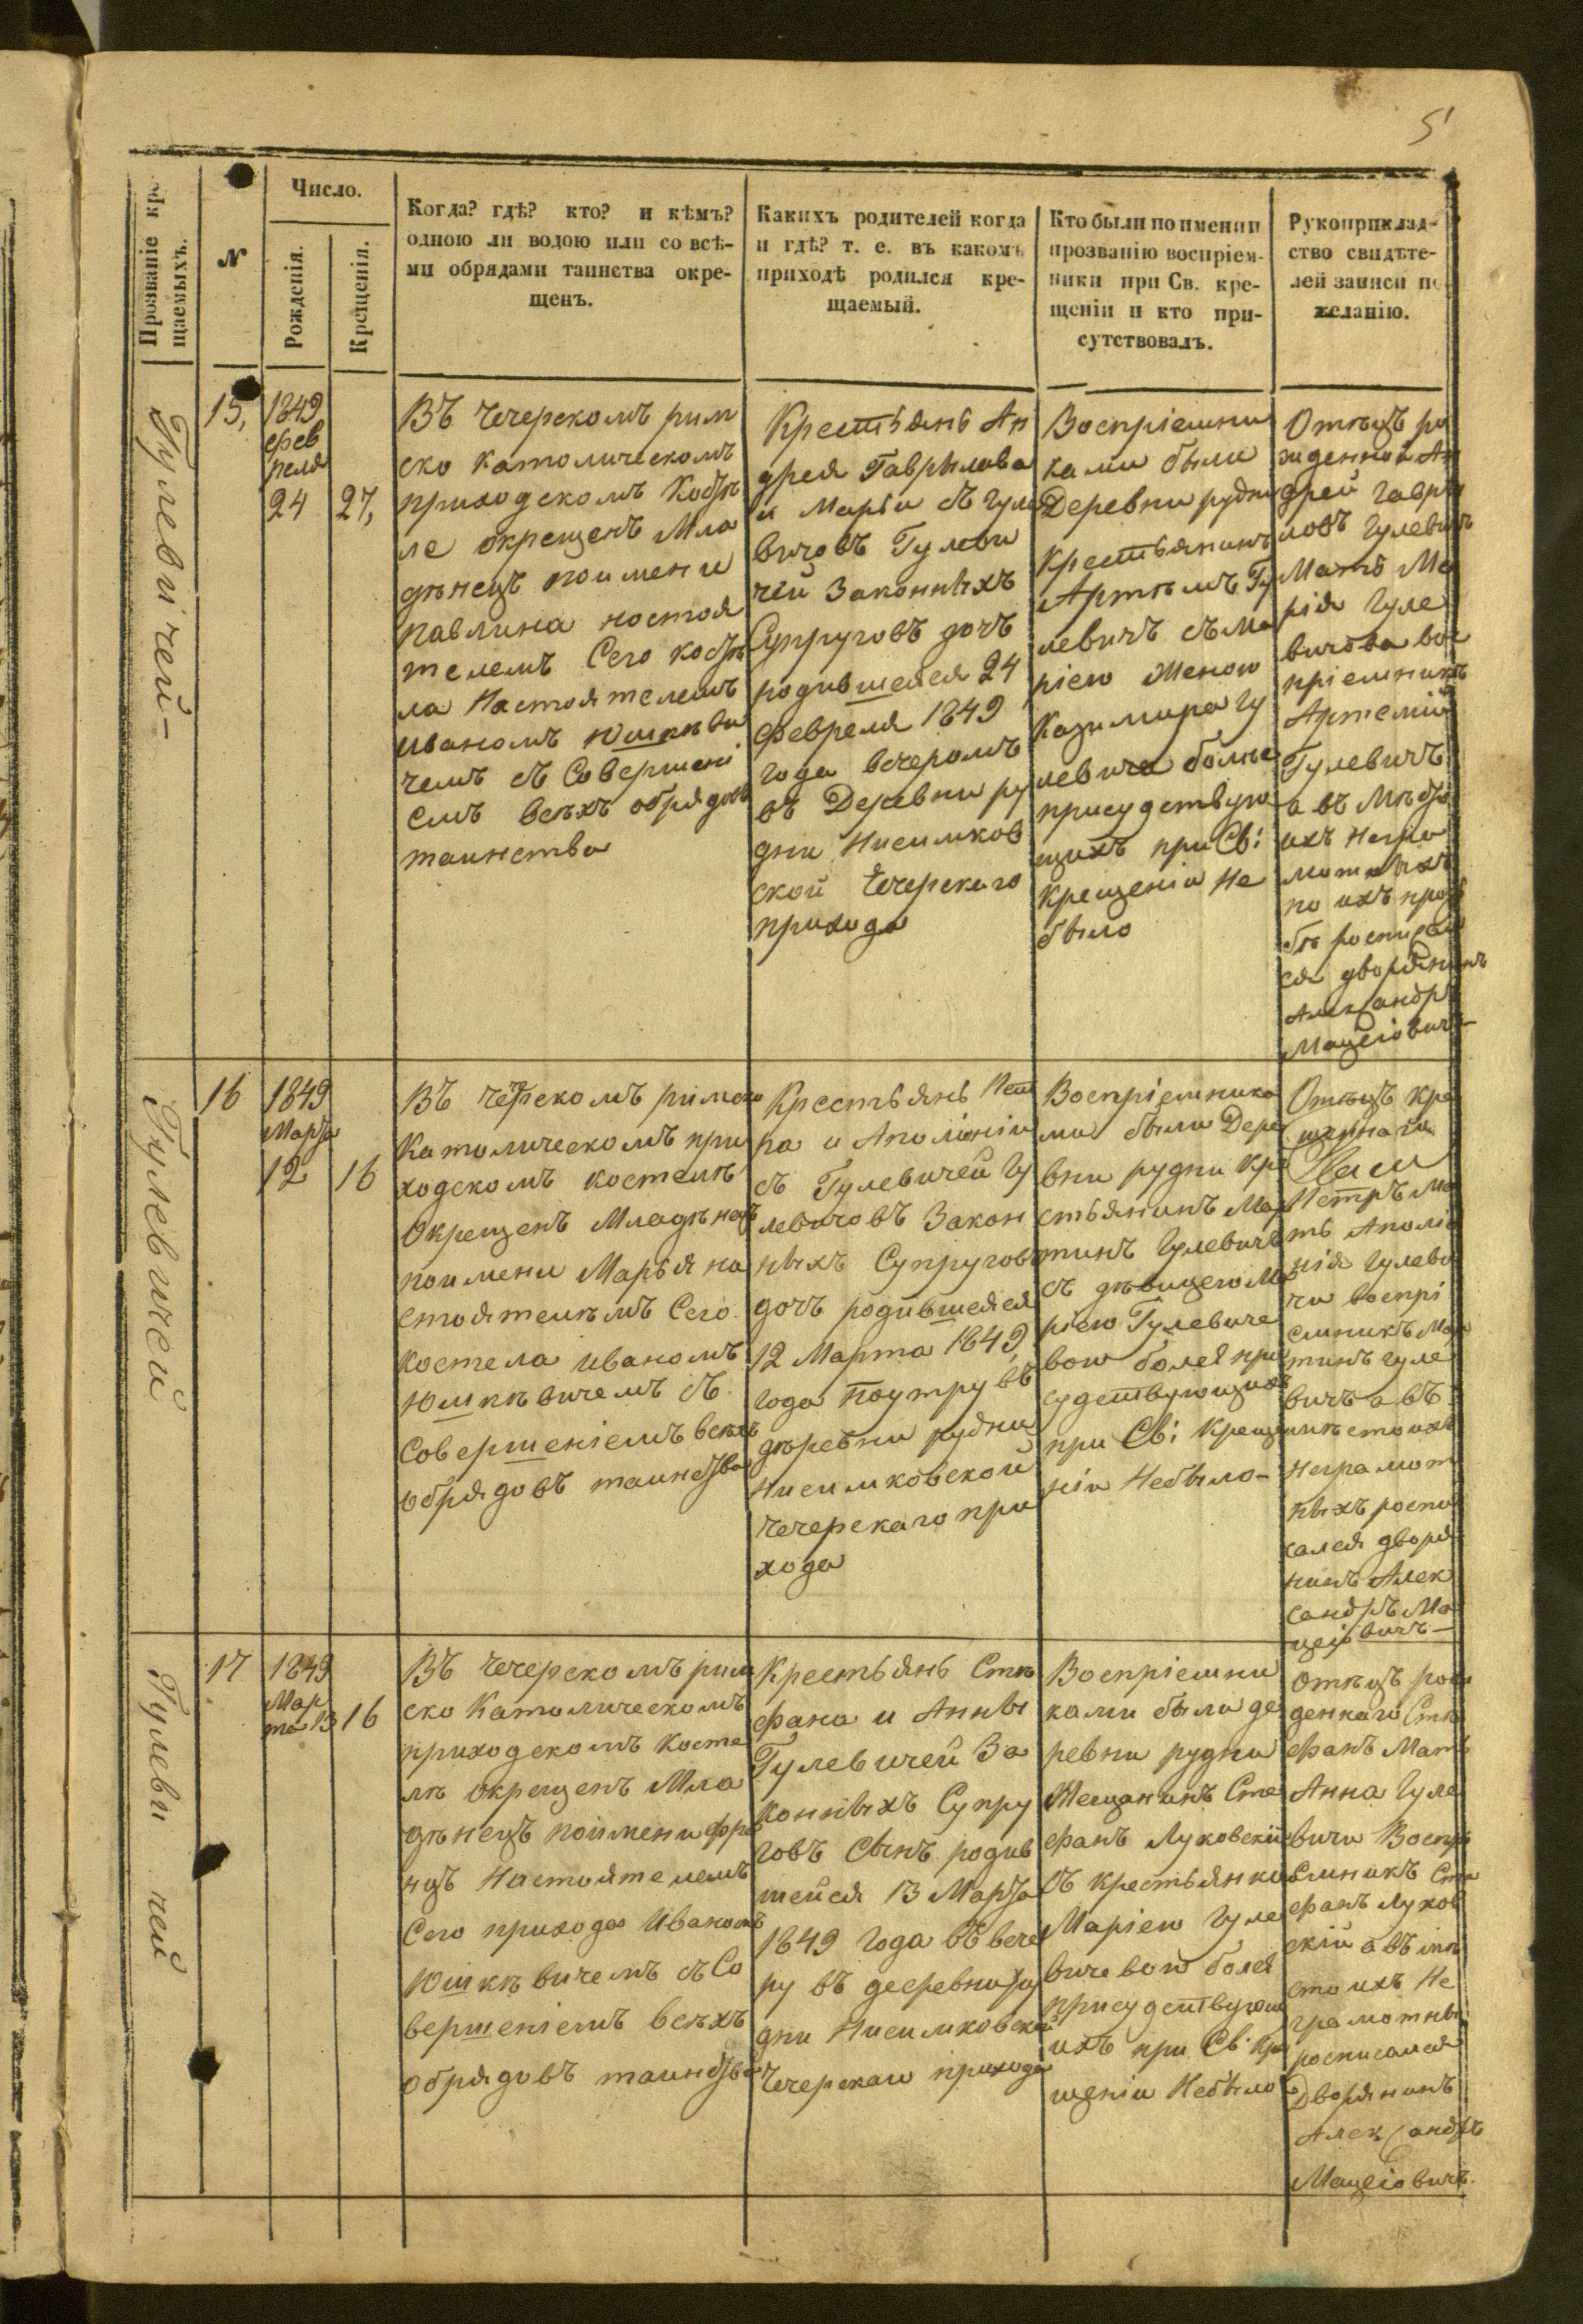 5
Прозваніе кре-
щаемыхъ.
N
Число.
Рожденія.
Крещенія.
Когда? гдѣ? кто? и кѣмъ?
одною ли водою или со всѣ-
ми обрядами таинства окре-
щенъ.
Какихъ родителей когда
и гдѣ? т. е. въ какомъ
приходѣ родился кре-
щаемый.
Кто были по имени и
прозванію воспріем-
ники при Св. кре-
щеніи и кто при-
сутствовалъ.
Рукоприклад-
ство свидѣте-
лей записи по
желанію.
Гулевичей-
15,
1849
фев
реля
24
27,
Въ Чечерскомъ рим
ско католическомъ
приходскомъ костѣ
ле окрещенъ Мла
дѣнецъ поимени
Павлина настоя
телемъ Сего костѣ
ла Настоятелемъ
Иваномъ Юшкѣви
чемъ съ Совершені
емъ всѣхъ обрядовъ
таинства
Крестьянъ Ан
дрея Гаврылова
и Марьи съ Гуле
вичовъ Гулеви
чей Законныхъ
Супруговъ дочъ
родившейся 24
Февреля 1849
года вечеромъ
въ Деревни ру
дни Нисимков
ской Чечерскаго
прихода
Воспріемни
ками были
Деревни рудни
Крестьянинъ
Артѣмъ Гу
левичъ съ Ма
ріею Женою
Казимира Гу
левича болѣе
присудствую
щихъ при Св:
Крещеніи не
было
Отѣцъ ро
жденной Ан
дрей Гаври
ловъ Гулевичъ
Мать Ма
рія Гуле
вичова вос
пріемникъ
Артемій
Гулевичъ
а въ Мѣсто
ихъ Негра
мотныхъ
по ихъ прозь
бѣ росписал
ся дворянинъ
Александръ
Мацеіовичъ-
Гулевичей
16
1849
Марта
12
16
Въ Чечерскомъ римско
Католическомъ при
ходскомъ костелѣ
Окрещенъ Младѣнецъ
поимени Марья на
стоятелѣмъ Сего
костела Иваномъ
Юшкѣвичемъ съ
Совершеніемъ всѣхъ
обрядовъ таинства
Крестьянъ Пет
ра и Аполіоніи
съ Гулевичей Гу
левичовъ Закон
ныхъ Супруговъ
дочъ родившейся
12 Марта 1849,
года Поутру въ
дѣревни рудни
Нисимковской
Чечерскаго при
хода
Воспріемника
ми были Дере
вни рудни кре
стьянинъ Мар
тинъ Гулевичъ
съ дѣвицею Ма
ріею Гулевиче
вою болея при
судствующихъ
при Св: Креще
ніи Небыло-
Отѣцъ Кре
щеннаго
Петръ Ма
ть Аполіо
нія Гулеви
чи воспрі
емникъ Мар
тинъ Гуле
вичъ а въ
мѣсто ихъ
Неграмот
ныхъ роспи
сался дворя
нинъ Алек
сандръ Ма
цеіовичъ-
Гулеви чей
17
1849
Мар
та 13
16
Въ Чечерскомъ рим
ско Католическомъ
приходскомъ Косте
лѣ окрещенъ Мла
дѣнецъ поимени Фра
нцъ Настоятелемъ
Сего прихода Иваномъ
Юшкѣвичемъ съ Со
вершеніемъ всѣхъ
обрядовъ таинства
Крестьянъ Стѣ
фана и Анны
Гулевичей За
конныхъ Супру
говъ Сынъ родив
шейся 13 Марта
1849 Года въ вече
ру въ десревни ру
дни Нисимковской
Чечерскаго прихода
Воспріемни
ками были де
ревни рудни
Мещанинъ Сте
фанъ Луковскій
съ крестьянкою
Маріею Гуле
вичевою болея
присудствующ
ихъ при Св: Кре
щеніи Небыло
Отѣцъ рож
деннаго Стѣ
фанъ Мать
Анна Гуле
вичи Воспрі
емникъ Сте
фанъ Луков
скій а въ мѣ
сто ихъ Не
грамотны
росписался
Дворянинъ
Александръ
Мацеіовичъ.